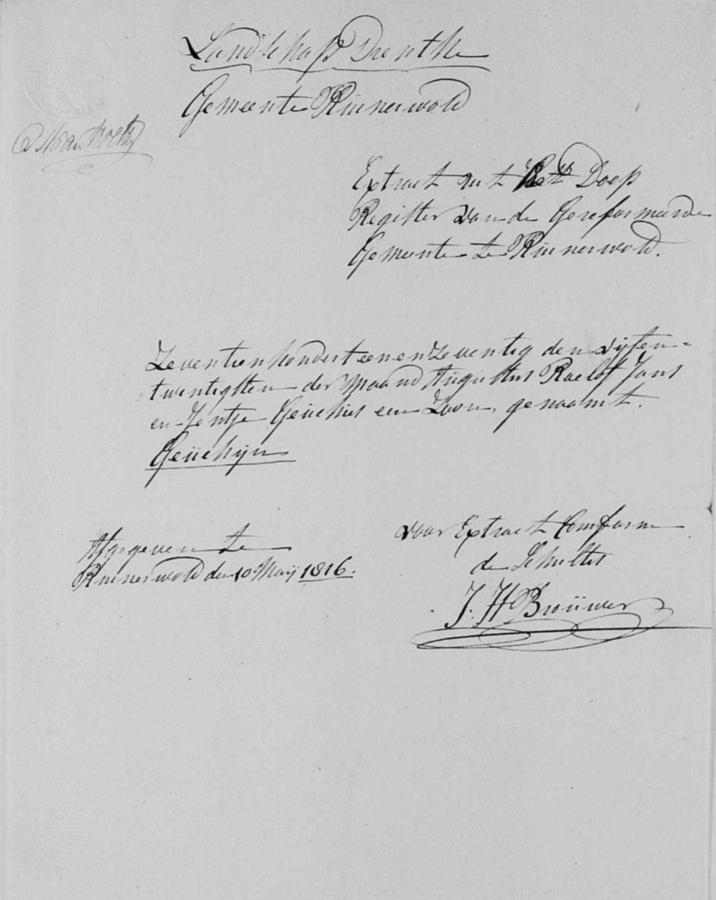 Landschap Drenthe
Gemeente Ruinerwold
Extract uit het Doop
Register van de Gereformeerde
Gemeente te Ruinerwold.
Zeventienhondert eenenzeventig den vijfen-
twentigsten der maand Augustus Roelof Jans
en Jentje Geüchies een Zoon, genaamt.
Geüchijn
Afgegeven te
Ruinerwold den 10 Maij 1816.
voor Extract Conform
de Schultes
J. H Broüwer